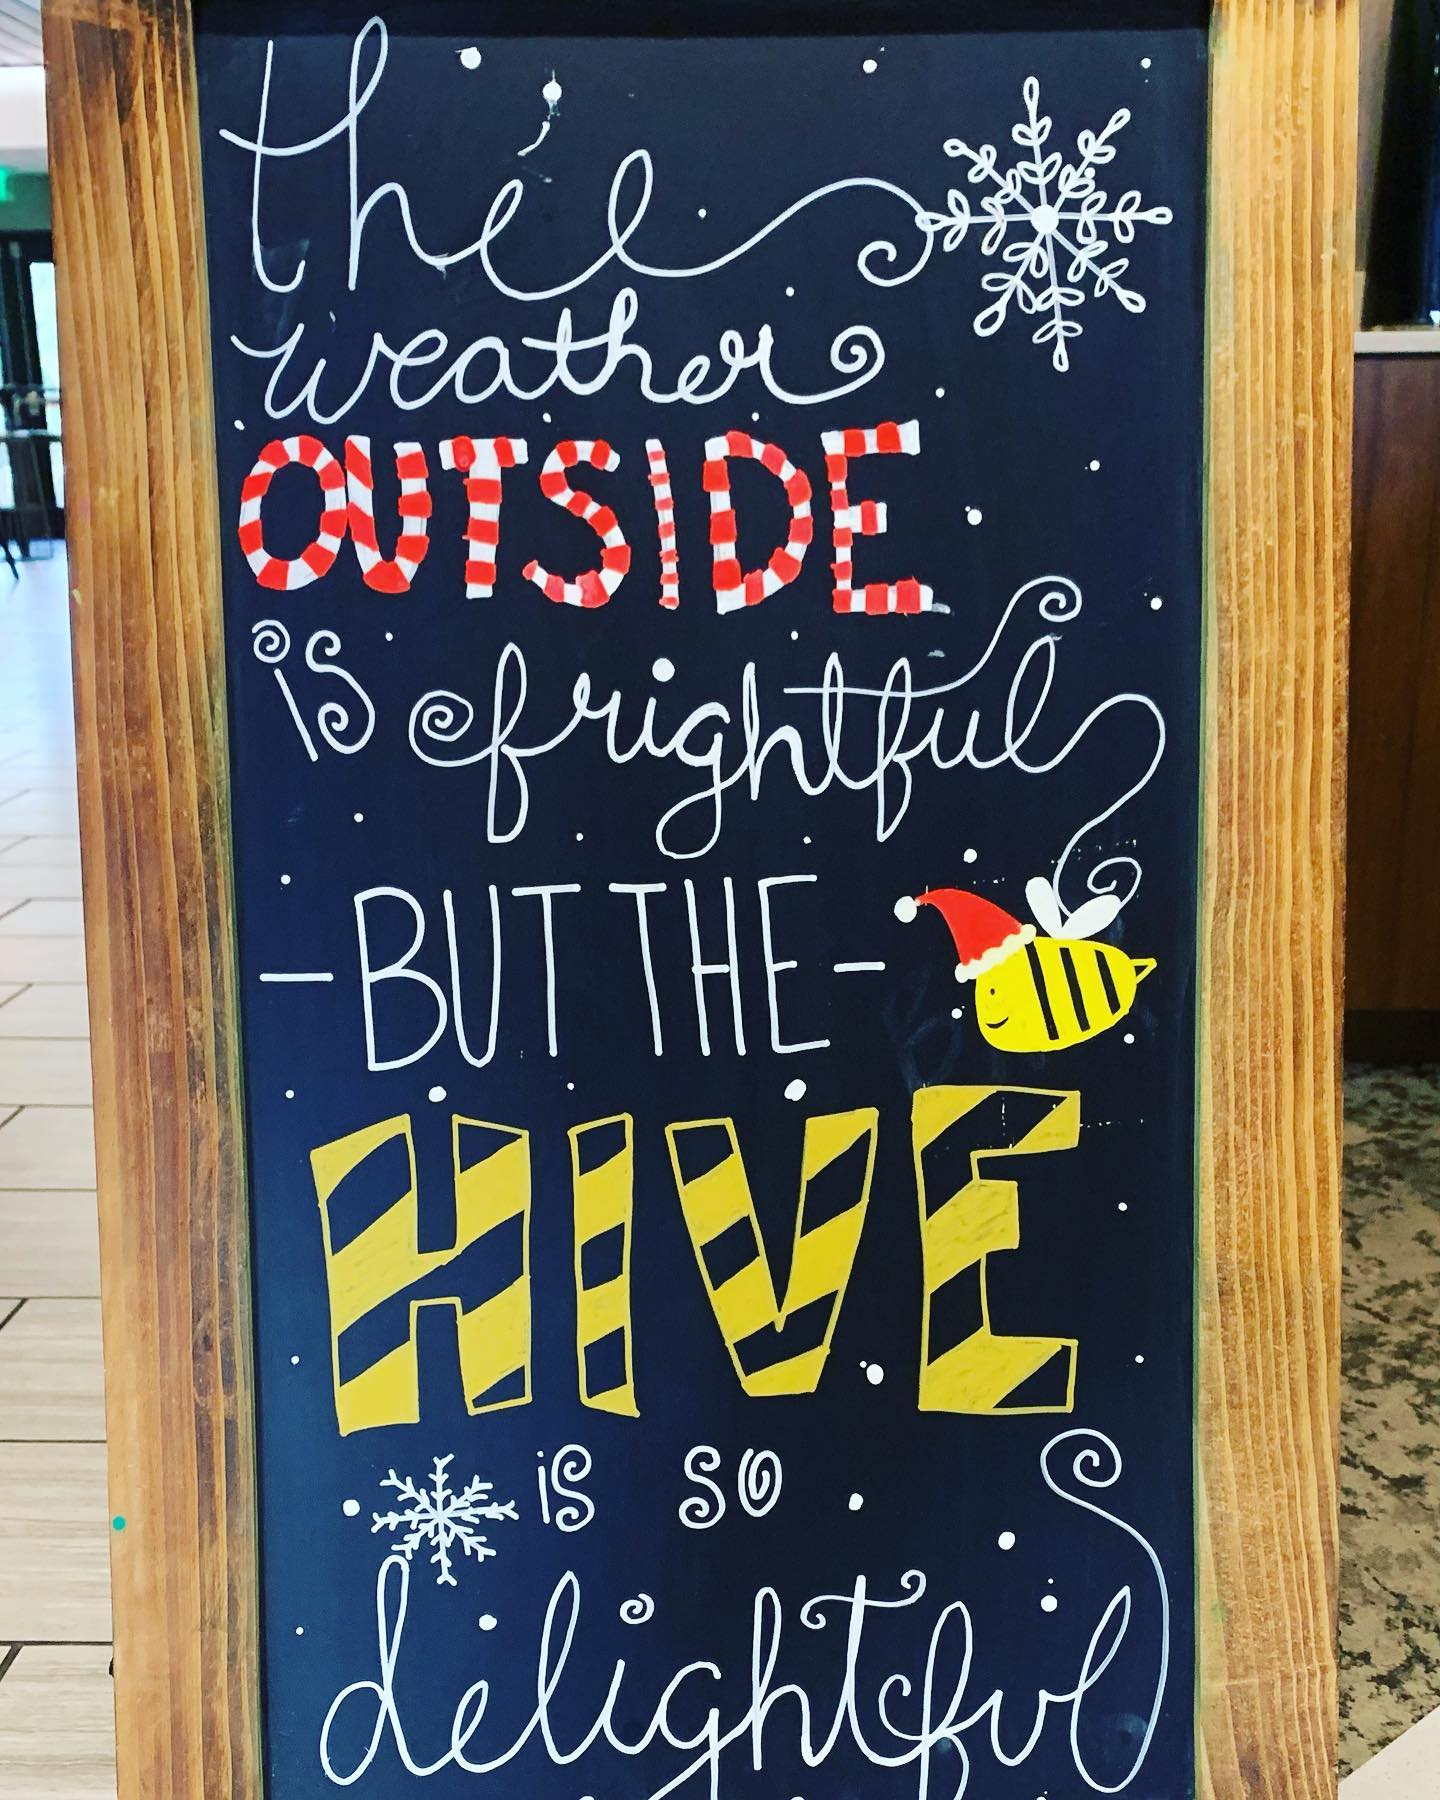 thee
weather
OUTSIDE
is frightful
-BUT THE-
HIVE
is so
delightful